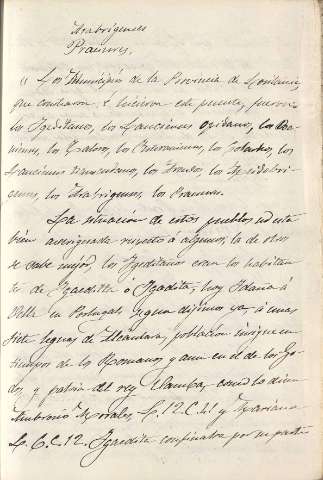 Arabrigenses
Praesures.
"Los Municipios de la Provincia de Lusitania,
que costearon é hicieron este puente, fueron
los Igeditanos, los Lancienses Opidanos, los
los Taloros, los Interamnienses, los Colarnos, los
Lancienses Transcudanos, los Aravos, los Meidubri-
genses, los Arabrigenses, los Praesures.
La situacion de estos pueblos no esta
bien averiguada respecto á algunos; la de otros
se sabe mejor; los Igeditanos eran los habitan-
tes de Igaedita ó Igedita, hoy Idaña á
Vella en Portugal, segun dijimos ya, á unas
siete leguas de Alcántara, poblacion insigne en
tiempos de los Romanos y aun en el de los Go-
dos, y patria del rey Wamba, como lo dicen
Ambrosio Morales, L. 12. C. 41 y Mariana
L. 6. C. 12. Igaedita confinaba por su parte